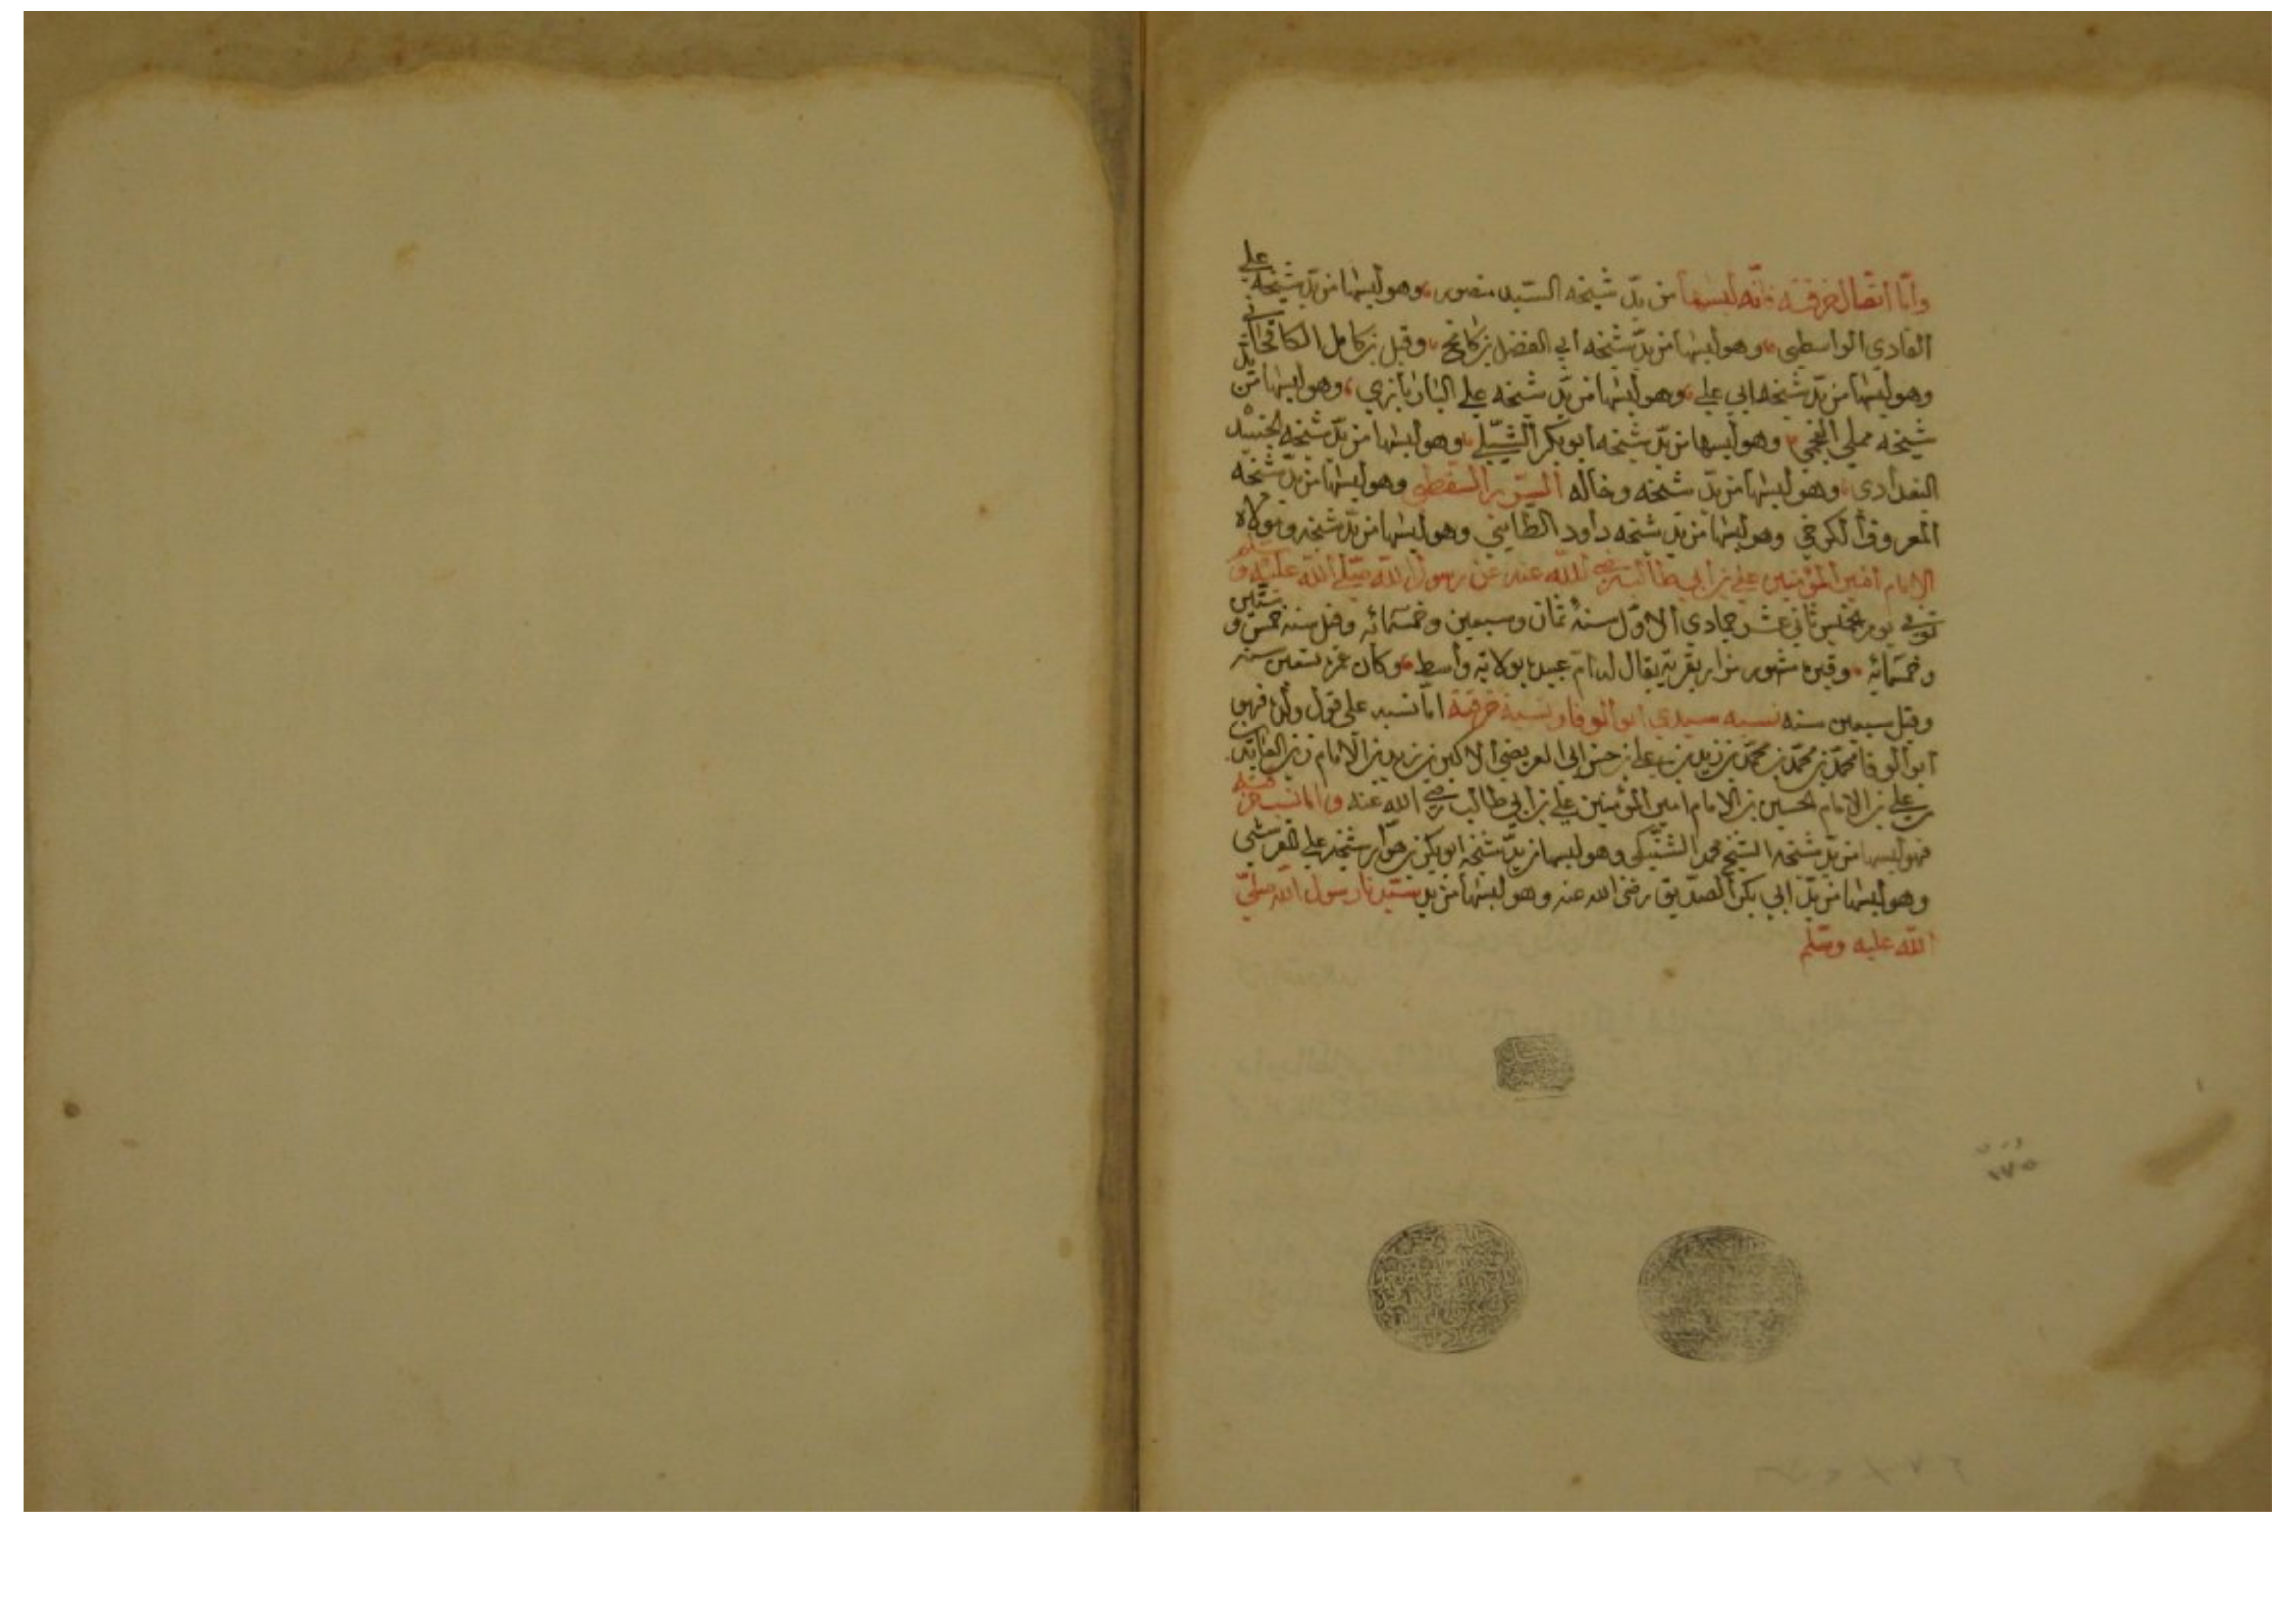 وأمّا اتصال خرقته فإنّه لبسها من يدّ شيخه السّيد منصور وهو لبسها من يدّ شيخه علي
القادي الواسطي وهو لبسها من يدّ شيخه ابي الفضل بن كامخ وقيل بن كامل
وهو لبسها من يدّ شيخه ابي علي وهو لبسها من يدّ شيخه علي البارباري وهو لبسها من يدّ
شيخه مملي العجمي وهو لبسها من يدّ شيخه ابو بكر الشّبلي وهو لبسها من يدّ شيخه الجنيد
البغدادي وهو لبسها من يدّ شيخه وخاله السّري السقطي وهو لبسها من يدّ شيخه
المعروف الكرخي وهو لبسها من يدّ شيخه داود الطّايئي وهو لبسها من يدّ شيخه ومولاه
الإمام امير المؤمنين علي بن ابي طالب رضي الله عنه عن رسول الله صلّى الله عليه وسلم
توفي يوم الخميس ثاني عشر جمادي الاوّل سنة ثمان وسبعين وخمسمائه وقيل سنه خمس وستين
وخمسمائه وقبره مشهور يزار بقرية يقال لها ام عبيده بولاية واسط وكان عمره تسعين سنه
وقيل سبعين سنه نسبه سيدي ابو الوفا ونسبة خرقته امّا نسبه على قول ولده فهو
ابو الوفا محمّد بن محمّد بن محمّد بن زيد بن علي بن حسن ابي العريضي الاكبر بن زيد بن الامام زين العابدين
علي بن الامام الحسين بن الامام امير المؤمنين علي بن ابي طالب رضي الله عنه واما نسب خرقته
فهو لبسها من يدّ شيخه الشيخ محمد الشنبكي وهو لبسها من يدّ شيخه ابو بكر بن هوّار شيخه علي
وهو لبسها من يدّ ابي بكر الصدّيق رضى الله عنه وهو لبسها من يد سيّدنا رسول الله صلىّ
الله عليه وسلّم